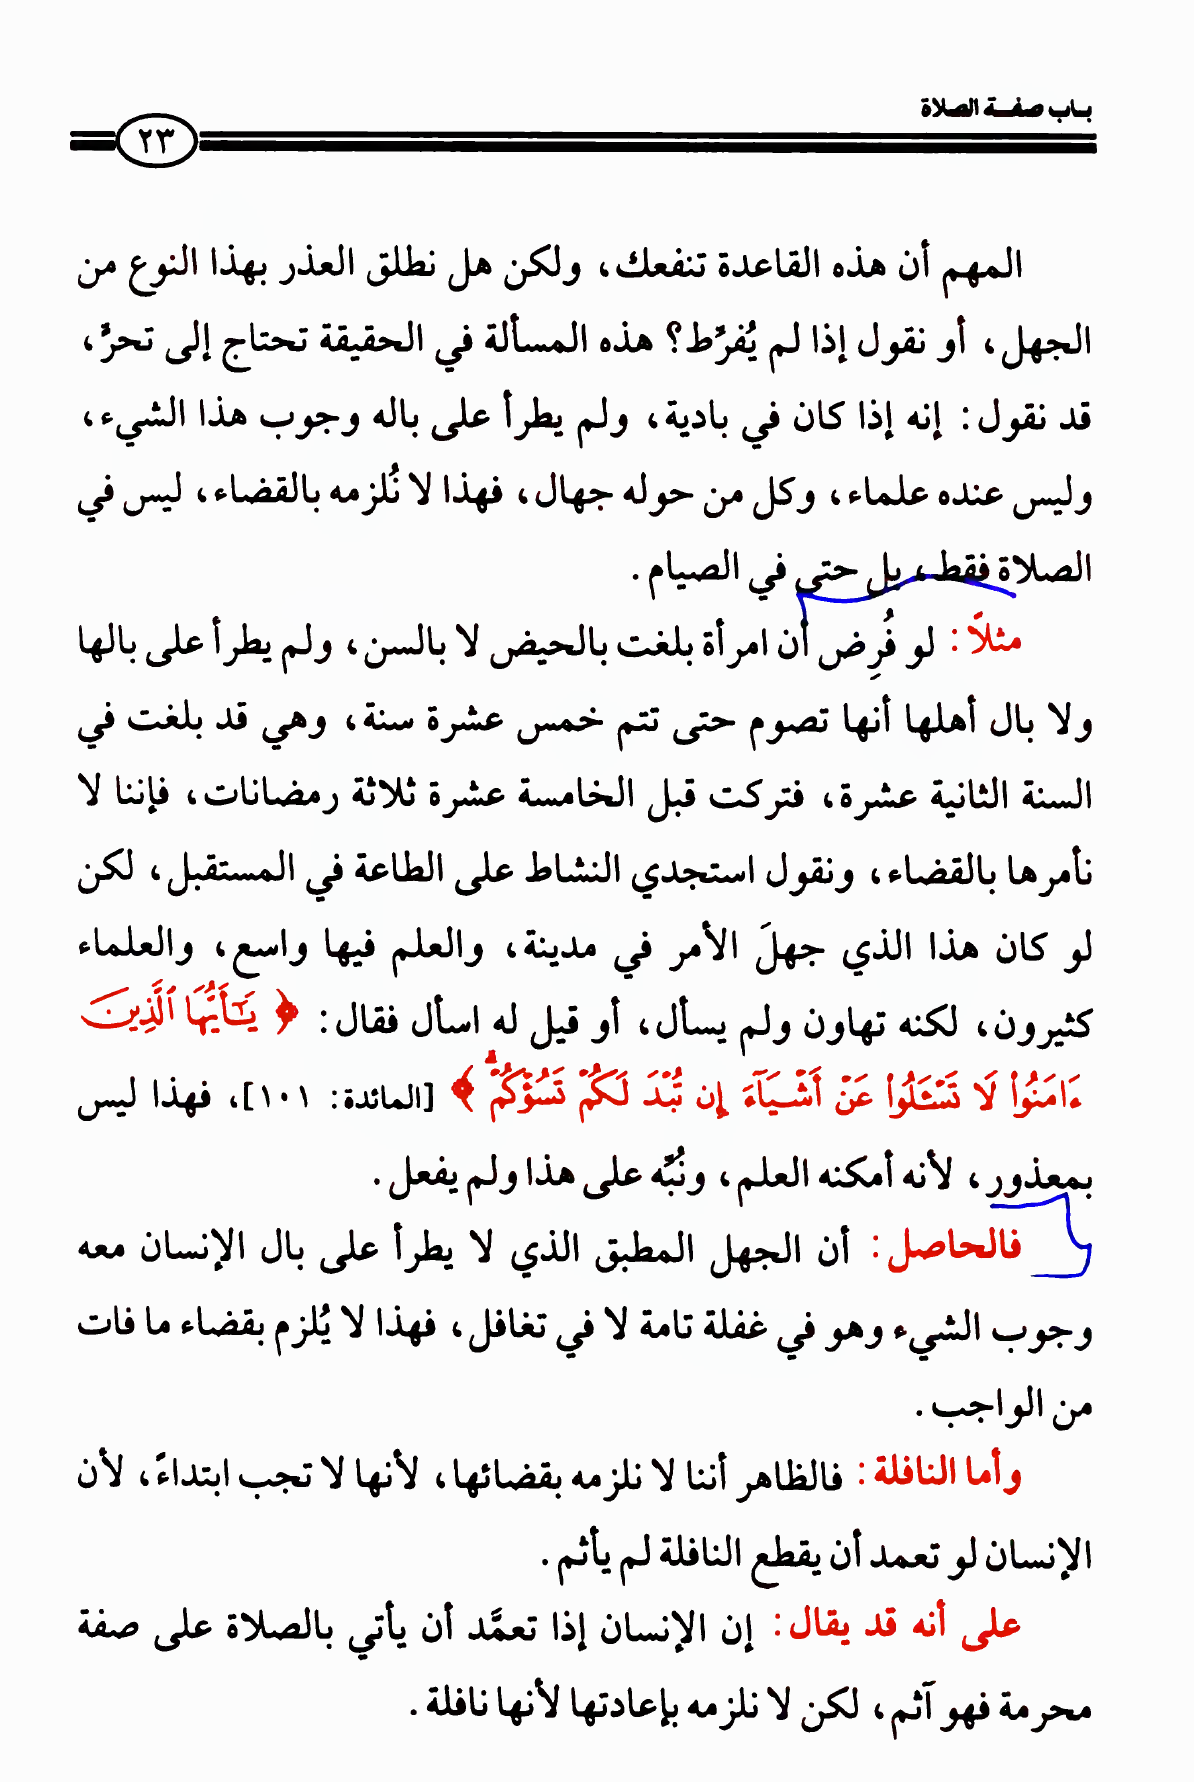 باب صفة الصلاة
٢٣
المهم أن هذه القاعدة تنفعك، ولكن هل نطلق العذر بهذا النوع من
الجهل، أو نقول إذا لم يُفرِّط؟ هذه المسألة في الحقيقة تحتاج إلى تحرٍّ،
قد نقول: إنه إذا كان في بادية، ولم يطرأ على باله وجوب هذا الشيء،
وليس عنده علماء، وكل من حوله جهال، فهذا لا نُلزمه بالقضاء، ليس في
الصلاة فقط، بل حتى في الصيام.
مثلاً: لو فُرِض أن امرأة بلغت بالحيض لا بالسن، ولم يطرأ على بالها
ولا بال أهلها أنها تصوم حتى تتم خمس عشرة سنة، وهي قد بلغت في
السنة الثانية عشرة، فتركت قبل الخامسة عشرة ثلاثة رمضانات، فإننا لا
نأمرها بالقضاء، ونقول استجدي النشاط على الطاعة في المستقبل، لكن
لو كان هذا الذي جهلَ الأمر في مدينة، والعلم فيها واسع، والعلماء
كثيرون، لكنه تهاون ولم يسأل، أو قيل له اسأل فقال: ﴿ يَـٰٓأَيُّهَا ٱلَّذِينَ
ءَامَنُوا۟ لَا تَسْـَٔلُوا۟ عَنْ أَشْيَآءَ إِن تُبْدَ لَكُمْ تَسُؤْكُمْ ۖ ﴾ [المائدة: ١٠١]، فهذا ليس
بمعذور، لأنه أمكنه العلم، ونُبِّه على هذا ولم يفعل.
فالحاصل: أن الجهل المطبق الذي لا يطرأ على بال الإنسان معه
وجوب الشيء وهو في غفلة تامة لا في تغافل، فهذا لا يُلزم بقضاء ما فات
من الواجب.
وأما النافلة: فالظاهر أننا لا نلزمه بقضائها، لأنها لا تجب ابتداءً، لأن
الإنسان لو تعمد أن يقطع النافلة لم يأثم.
على أنه قد يقال: إن الإنسان إذا تعمَّد أن يأتي بالصلاة على صفة
محرمة فهو آثم، لكن لا نلزمه بإعادتها لأنها نافلة.